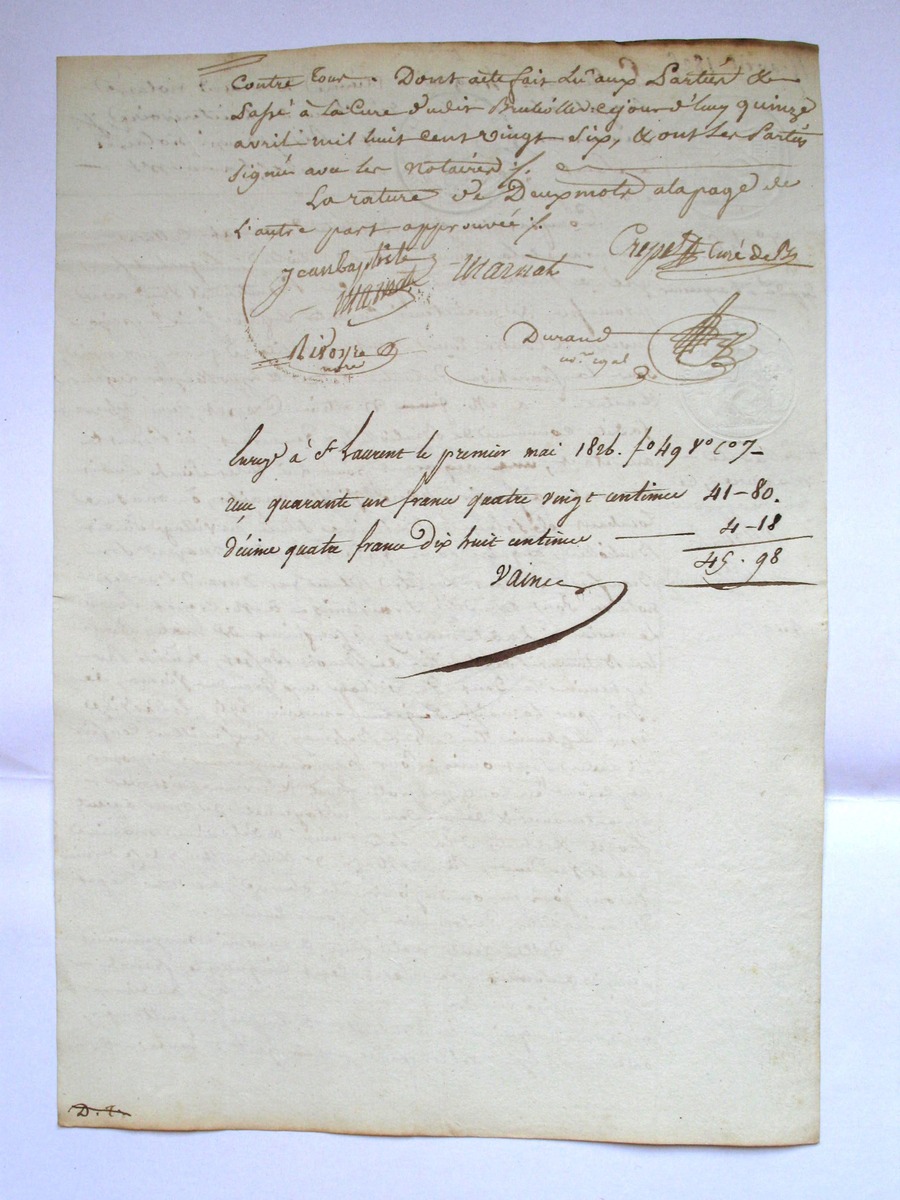 contre tous. Dont acte fait Lu aux Parties &
Passé à la Cure dudit Brulliolles cejourd'huy quinze
avril mil huit cent vingt six, & ont les Parties
signés avec les Notaires /.
La rature de Deux mots a la page de
L'autre part approuvée /.
Jean Baptiste marnat
marnat
Crepet Curé de B
Rivoyre
nore
Durand
no.re royal
Enregé à St Laurent le premier mai 1826. fo 49 Vo Co 7
reçu quarante un francs quatre vingt centimes 41-80.
décime quatre francs dix huit centimes 4-18
45.98
Vaine